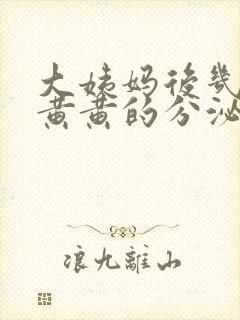 大姨妈后几
黄黄的分泌
浪九離山